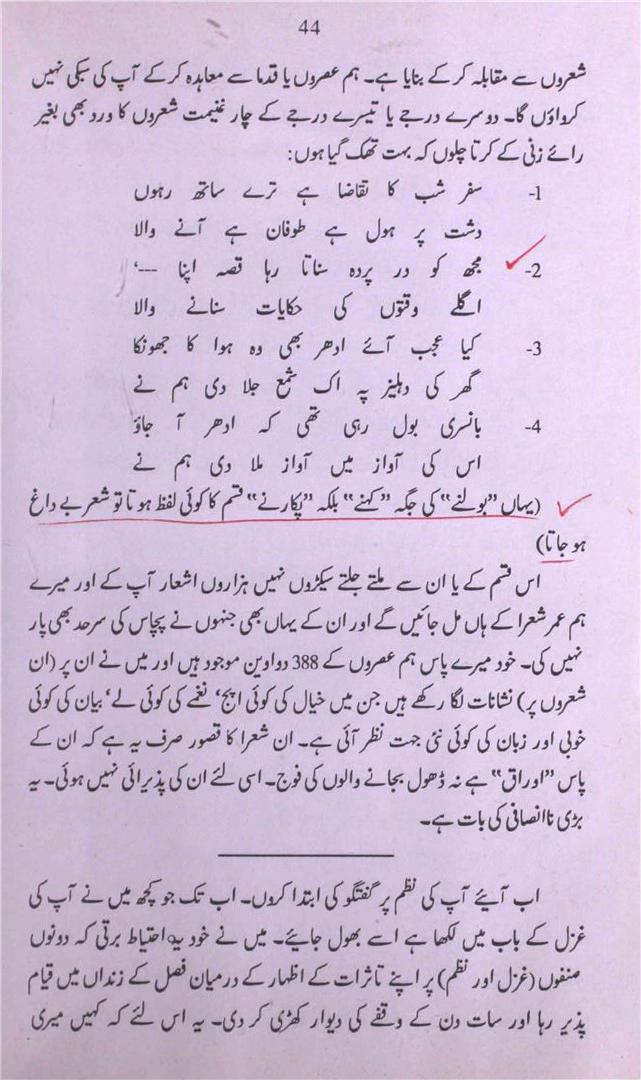 44
شعروں سے مقابلہ کر کے بنایا ہے۔ ہم عصروں یا قدما سے معاہدہ کر کے آپ کی سبکی نہیں
کرواؤں گا۔ دوسرے درجے یا تیسرے درجے کے چار غنیمت شعروں کا ورد بھی بغیر
رائے زنی کے کرتا چلوں کہ بہت تھک گیا ہوں:
1- سفر شب کا تقاضا ہے ترے ساتھ رہوں
دشت پر ہول ہے طوفان ہے آنے والا
2- مجھ کو در پردہ سناتا رہا قصہ اپنا ---‘
اگلے وقتوں کی حکایات سنانے والا
3- کیا عجب آئے ادھر بھی وہ ہوا کا جھونکا
گھر کی دہلیز پہ اک شمع جلا دی ہم نے
4- بانسری بول رہی تھی کہ ادھر آ جاؤ
اس کی آواز میں آواز ملا دی ہم نے
(یہاں ”بولنے“ کی جگہ ”کہنے“ بلکہ ”پکارنے“ قسم کا کوئی لفظ ہوتا تو شعر بے داغ
ہو جاتا)
اس قسم کے یا ان سے ملتے جلتے سیکڑوں نہیں ہزاروں اشعار آپ کے اور میرے
ہم عمر شعرا کے ہاں مل جائیں گے اور ان کے یہاں بھی جنہوں نے پچاس کی سرحد بھی پار
نہیں کی۔ خود میرے پاس ہم عصروں کے 388 دواوین موجود ہیں اور میں نے ان پر (ان
شعروں پر) نشانات لگا رکھے ہیں جن میں خیال کی کوئی اپج‘ نغمے کی کوئی لے‘ بیان کی کوئی
خوبی اور زبان کی کوئی نئی جہت نظر آئی ہے۔ ان شعرا کا قصور صرف یہ ہے کہ ان کے
پاس ”اوراق“ ہے نہ ڈھول بجانے والوں کی فوج۔ اسی لئے ان کی پذیرائی نہیں ہوئی۔ یہ
بڑی ناانصافی کی بات ہے۔
اب آیئے آپ کی نظم پر گفتگو کی ابتدا کروں۔ اب تک جو کچھ میں نے آپ کی
غزل کے باب میں لکھا ہے اسے بھول جایئے۔ میں نے خود یہ احتیاط برتی کہ دونوں
صنفوں (غزل اور نظم) پر اپنے تاثرات کے اظہار کے درمیان فصل کے زنداں میں قیام
پذیر رہا اور سات دن کے وقفے کی دیوار کھڑی کر دی۔ یہ اس لئے کہ کہیں میری